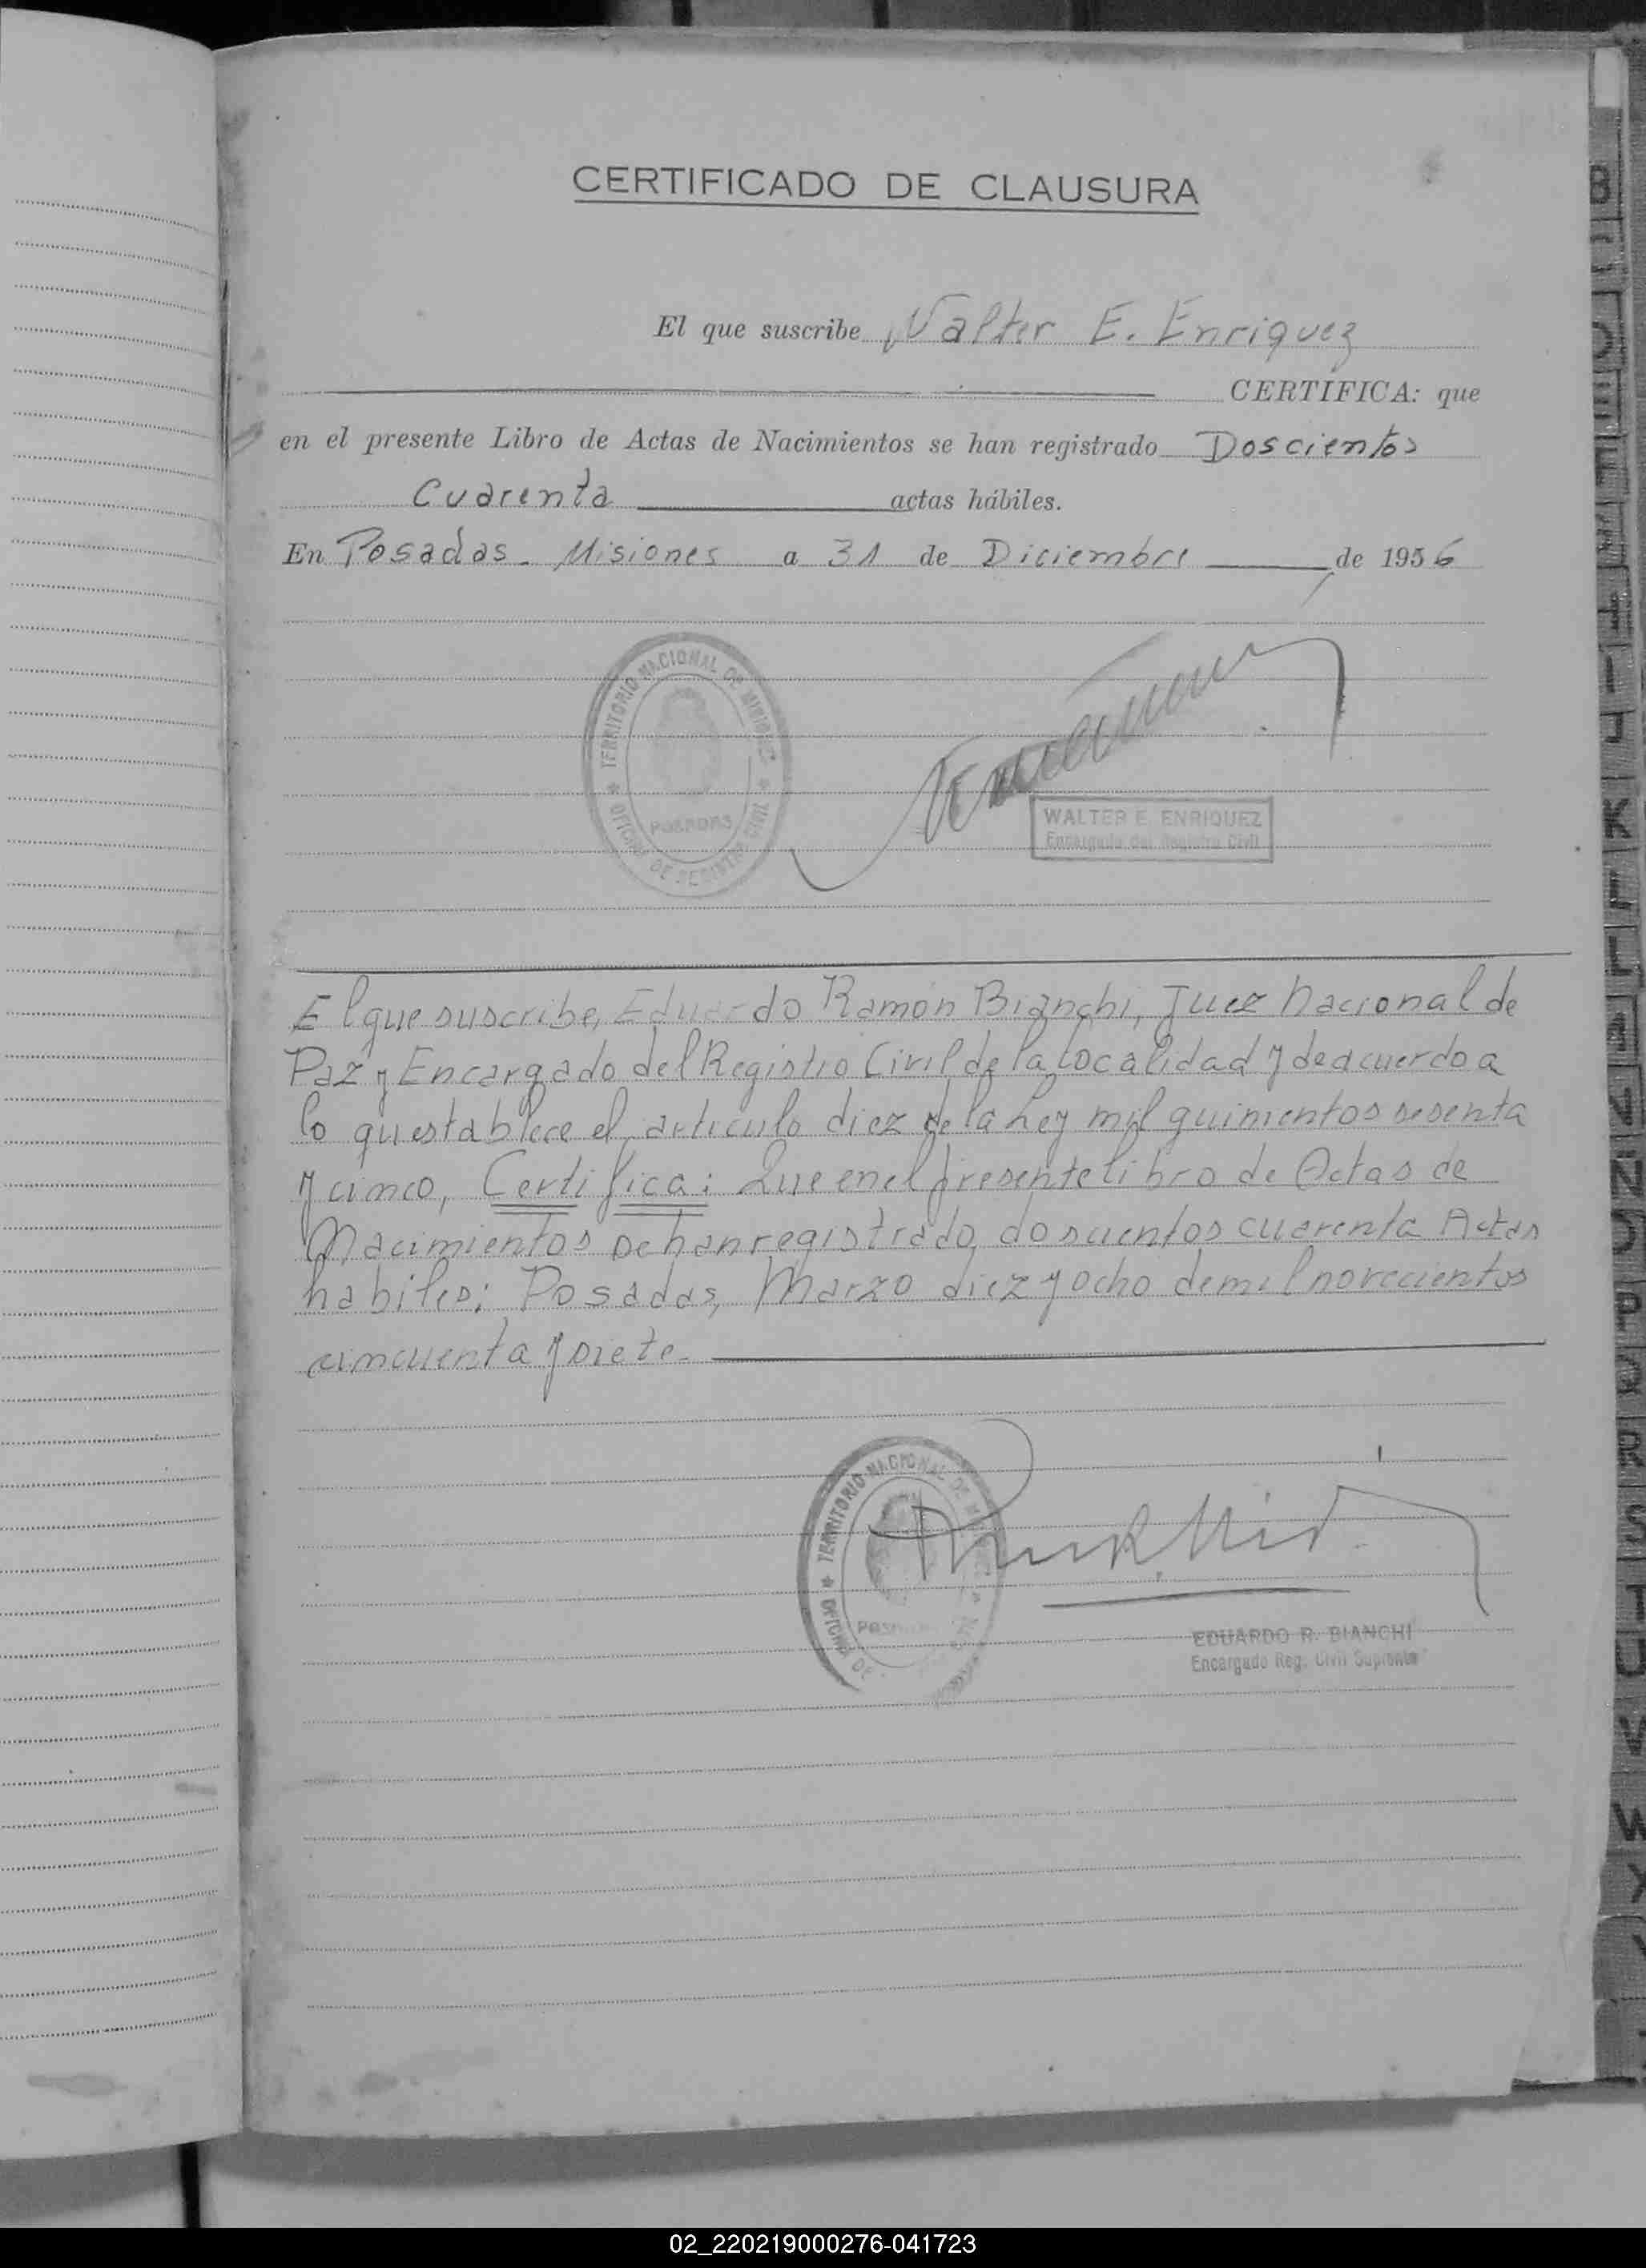 CERTIFICADO DE CLAUSURA
El que suscribe Walter E. Enriquez
CERTIFICA: que
en el presente Libro de Actas de Nacimientos se han registrado Doscientos
Cuarenta actas hábiles.
En Posadas - Misiones a 31 de Diciembre de 1956
TERRITORIO NACIONAL DE MISIONES
POSADAS
OFICINA DE REGISTRO CIVIL
WALTER E. ENRIQUEZ
Encargado del Registro Civil
El que suscribe, Eduardo Ramón Bianchi, Juez Nacional de
Paz y Encargado del Registro Civil de la Localidad y de acuerdo a
lo qu establece el articulo diez de la Ley mil quinientos sesenta
y cinco, Certifica: Que en el presente libro de Actas de
Nacimientos se han registrado doscientos cuarenta Actas
habiles; Posadas, Marzo diez y ocho de mil novecientos
cincuenta y siete.-
TERRITORIO NACIONAL DE
OFICINA DE
EDUARDO R. BIANCHI
Encargado Reg. Civil Suplente
B
I
J
K
L
N
O
P
R
S
T
U
V
W
02_220219000276-041723